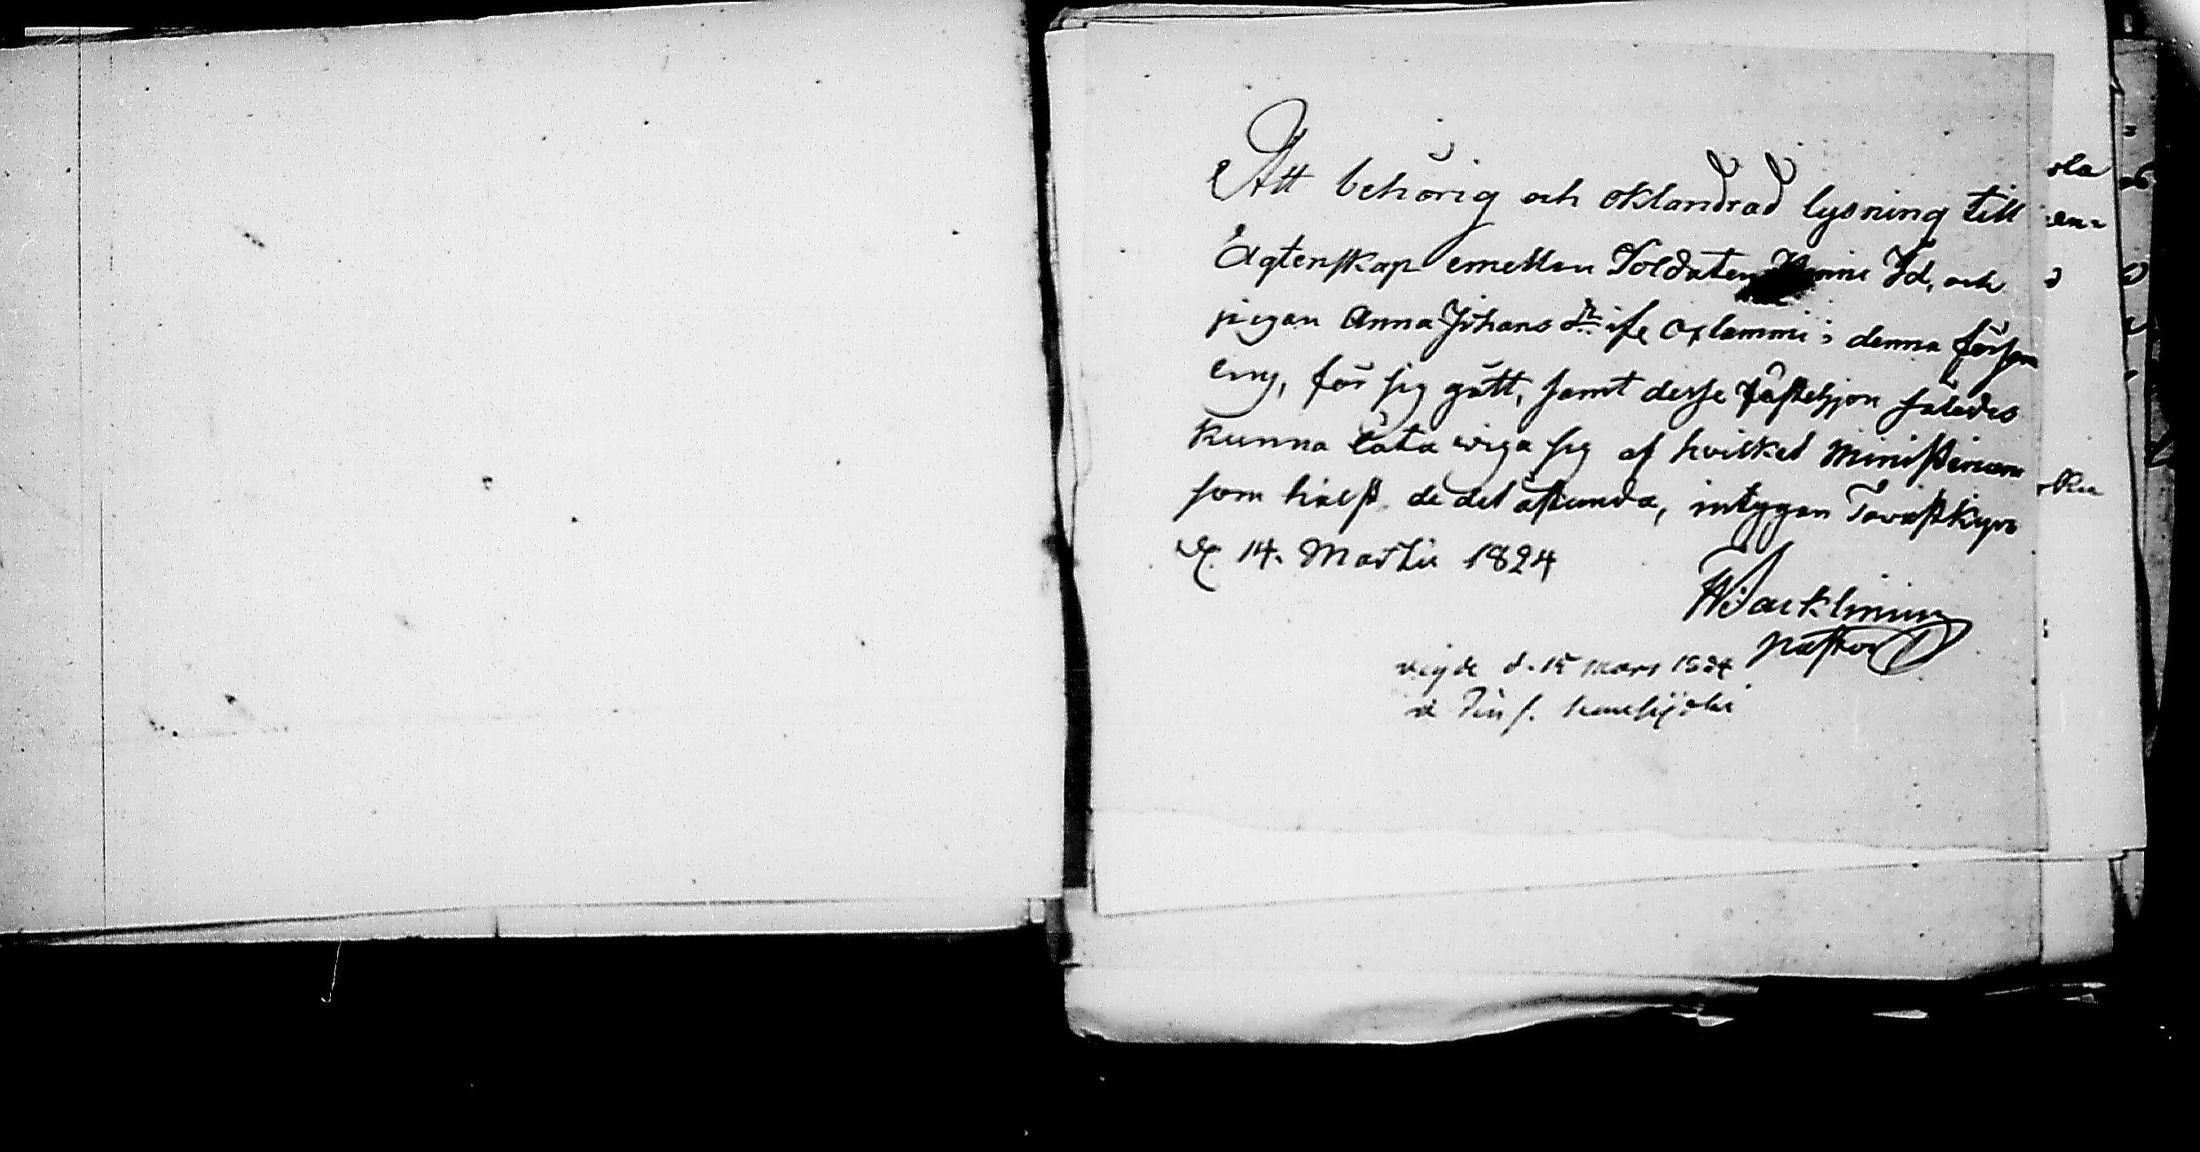 Att behörig och oklandrad lysning till
Ägtenskap emellan Soldaten Id, och
pigan Anna Johans dr ifr i denna försam
ling, för sig gått, samt desse fästehjon således
kunna låta wiga sig af hvilket Ministerium
som hälst de det åstunda, intygar Tavastkyro
d. 14. Martii 1824
Pastor
vigde d. 15 mars 1824